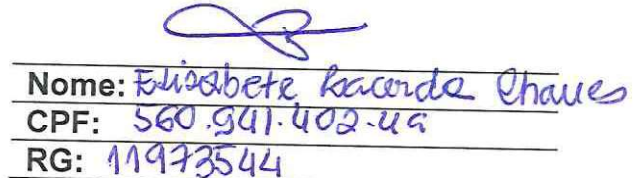 Nome: Elisabete Lacerda Chaves
CPF: 560.941.402-49
RG: 11973544